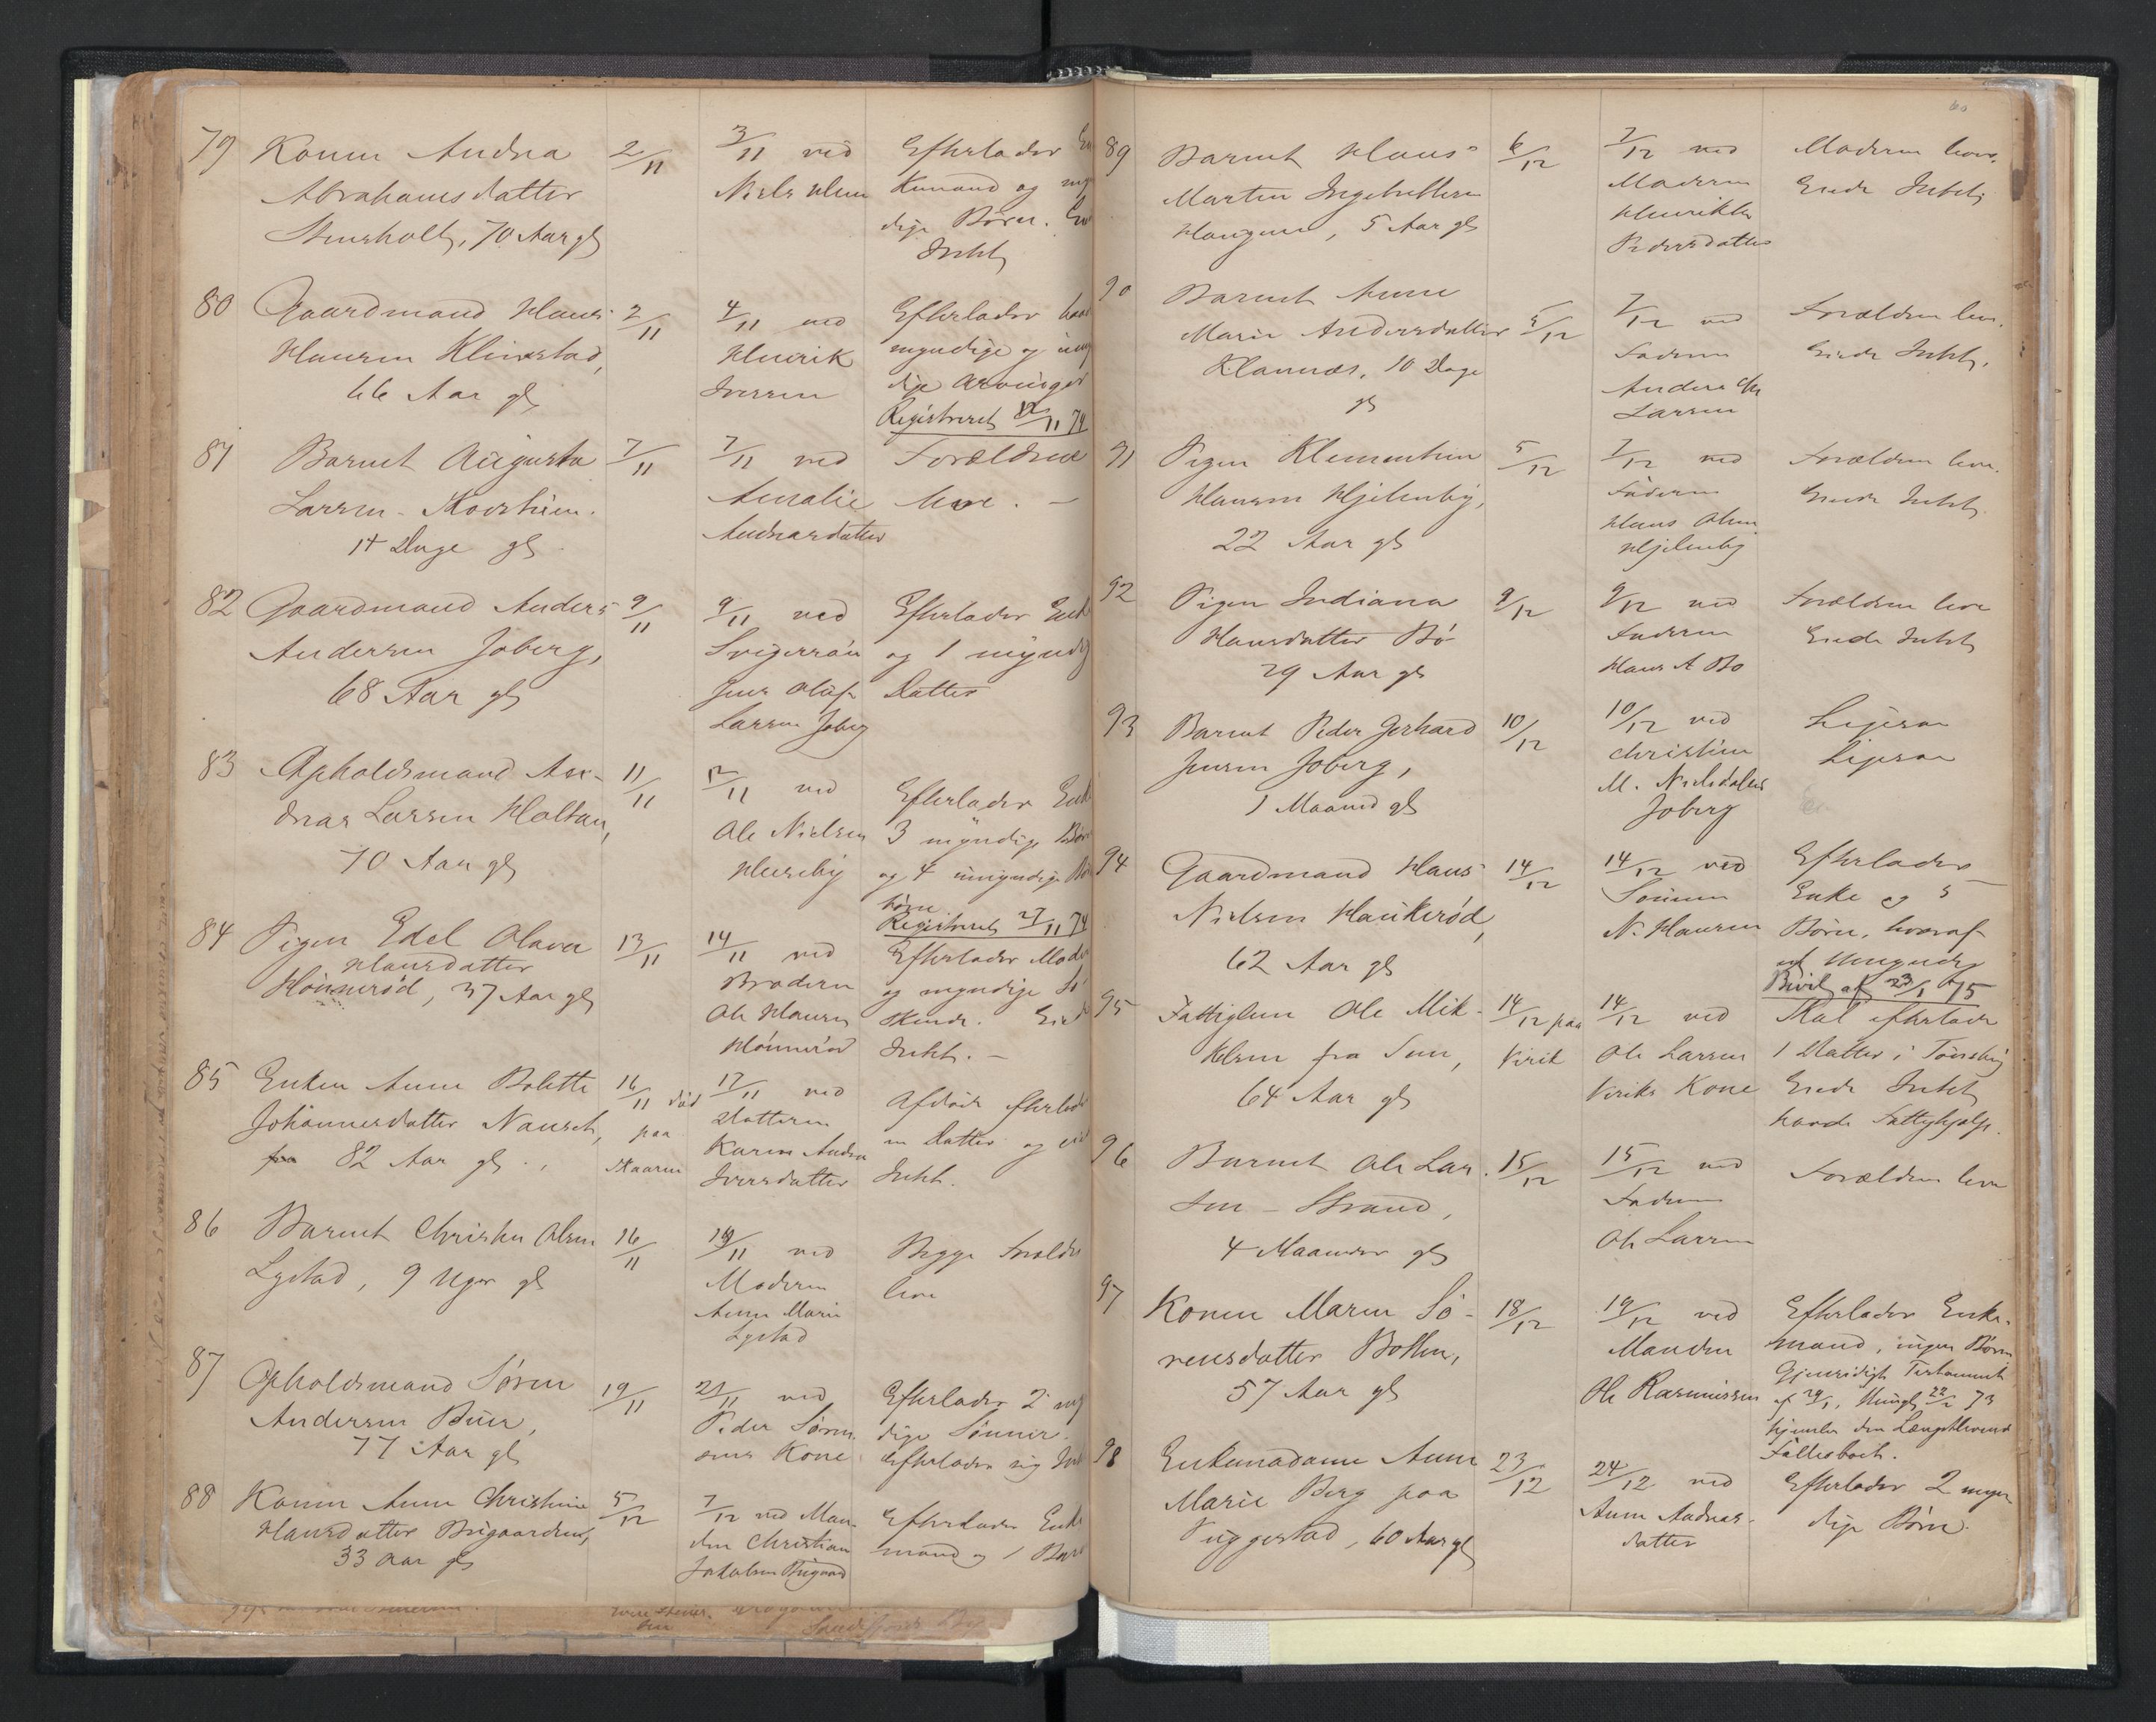 79 Konen Andrea 2/11 3/11 ved Efterlader
Abrahamsdatter Niels Olsen Kemand og
Stensholt, 70 Aar gl dige Børn.
Intet
80 Gaardmand Hans 2/11 4/11 ved Efterlader
Hansen Klinestad, Henrik myndige og
66 Aar gl Iversen dige Arvinger
Registreret 12/11 74
81 Barnet Augusta 7/11 7/11 ved Forældrene
Larsen 14 Dage gl Amalie leve. —
Andreasdatter
82 Gaardmand Anders 9/11 9/11 ved Efterlader
Andersen Joberg, Svigersøn og 1 myndig
68 Aar gl Jens Olaf Datter
Larsen Joberg
83 Opholdsmand An- 11/11 12/11 ved Efterlader
dreas Larsen Holtan, Ole Nielsen 3 myndige
70 Aar gl og 4 umyndige
børn
Registreret 27/11 74
84 Pigen Edel Olava 13/11 14/11 ved Efterlader
Hansdatter Broderen og myndige
Hønnerød, 37 Aar gl Ole Hansen skende.
Hønnerød Intet. —
85 Enken Anne Bolette 16/11 død 17/11 ved Afdøde
Johannesdatter paa Datteren en Datter og
82 Aar gl Skaaren Karen Andrea Intet.
Iversdatter
86 Barnet Christen Olsen 16/11 ved Begge
Lystad, 9 Uger gl Moderen leve
Anne Marie
Lystad
87 Opholdsmand Søren 19/11 21/11 ved Efterlader 2
Andersen Buer, Peder Søren- dige Sønner.
77 Aar gl sens Kone Efterlader sig
88 Konen Anne Christine 5/12 7/12 ved Man- Efterlader
Hansdatter den Christian mand og 1
33 Aar gl Jakobsen
60
89 Barnet Hans 6/12 7/12 ved Moderen lever.
Martin Ingebretsen Moderen Eiede Intet
Haugene, 5 Aar gl Henrikke
Pedersdatter
90 Barnet Anne
Marie Andersdatter 5/12 7/12 ved Forældrene leve.
10 Dage Faderen Eiede Intet.
gl Anders
Larsen
91 Pigen Klementine 5/12 7/12 ved Forældrene leve.
Hansen Hjelmby, Faderen Eiede Intet
22 Aar gl Hans Olsen
Hjelmby
92 Pigen Indiana 9/12 9/12 ved Forældrene leve
Hansdatter Bø Faderen Eiede Intet
29 Aar gl Hans A Bø
93 Barnet Peder Gerhard 10/12 10/12 ved Ligesaa
Jensen Joberg, Christine Ligesaa
1 Maaned gl M. Nielsdatter
Joberg
94 Gaardmand Hans 14/12 14/12 ved Efterlader
Nielsen Haukerød, Sønnen Enke og 5
62 Aar gl N. Hansen Børn, hvoraf
Bevil af 23/1 75
95 Fattiglem Ole Mik- 14/12 paa 14/12 ved Skal efterlade
kelsen fra Sem, Virik Ole Larsen 1 Datter i Tønsberg
64 Aar gl Viriks Kone Eiede Intet
havde Fattighjælp.
96 Barnet Ole Lar- 15/12 15/12 ved Forældrene leve
sen – Strand, Faderen
4 Maaneder gl Ole Larsen
97 Konen Maren Sø- 18/12 19/12 ved Efterlader Enke-
rensdatter Manden mand, ingen Børn
57 Aar gl Ole Rasmussen Gjensidigt Testament
hjemler den Længstlevende
98 Enkemadame Anne 23/12 24/12 ved Efterlader 2 myn-
Marie Berg paa Anne Andreas- dige Børn.
60 Aar gl datter